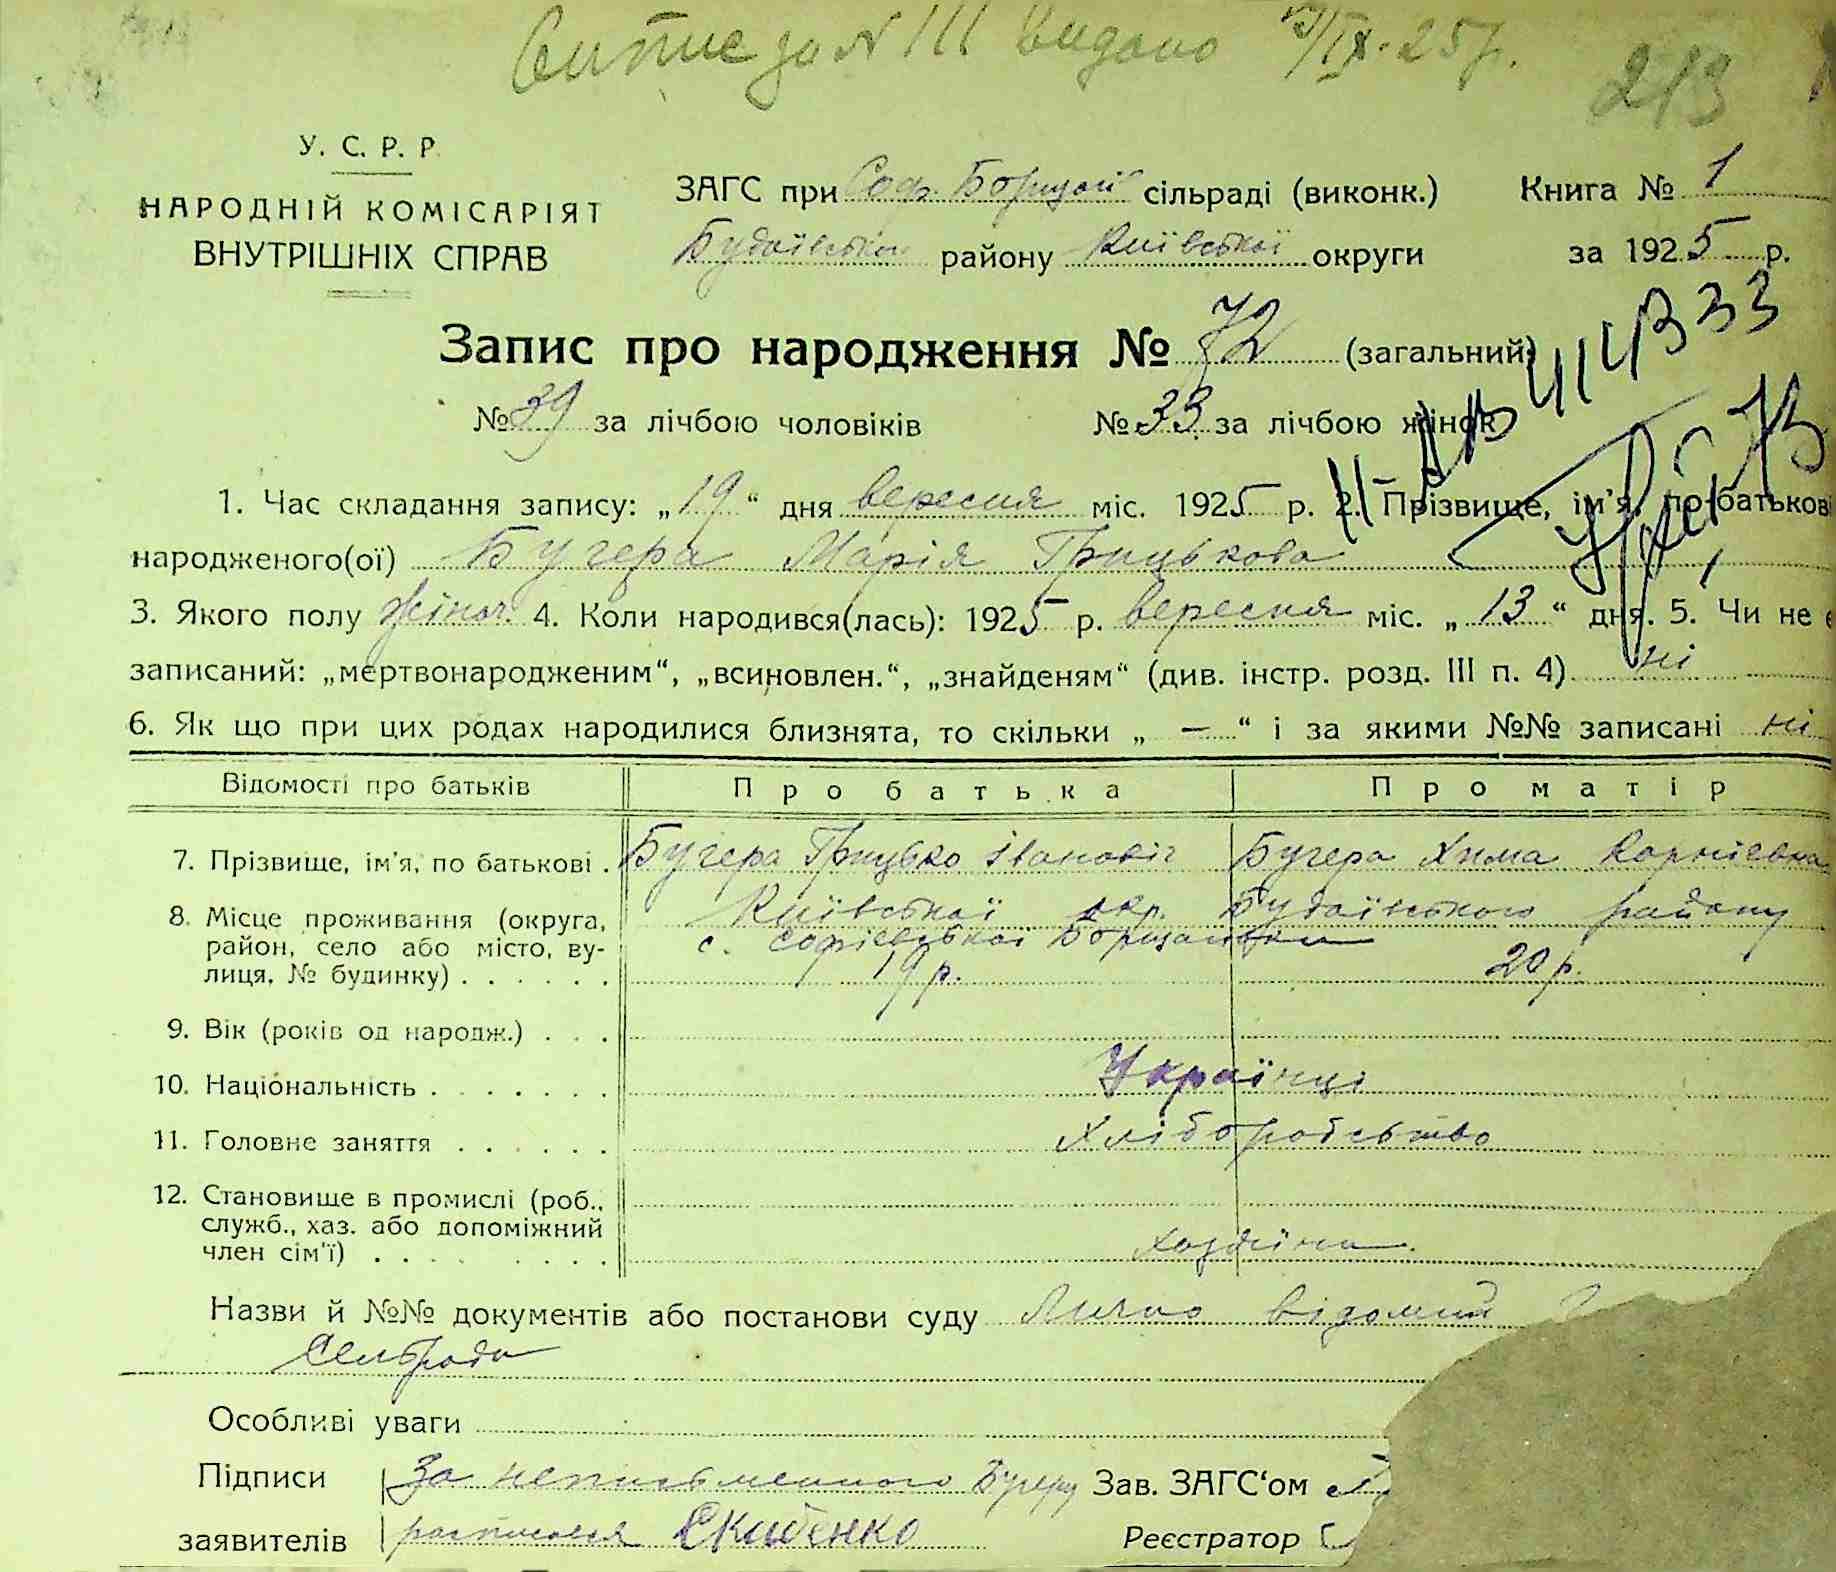 Випис за N 111 видано /IX-25р.
213
У. С. Р. Р
НАРОДНІЙ КОМІСАРІЯТ
ВНУТРІШНІХ СПРАВ
ЗАГС при Соф. Борщагі сільраді (виконк.) Книга № 1
Будаївського району Київської округи за 1925 р.
Запис про народження № 72 (загальний)
№ 39 за лічбою чоловіків № 33 за лічбою жінок
II-АВ 414333
1. Час складання запису: „19“ дня вересня міс. 1925 р. 2. Прізвище, ім'я, по-батькові
народженого(ої) Бугера Марія Грицькова
3. Якого полу жіноч. 4. Коли народився(лась): 1925 р. вересня міс. „13“ дня. 5. Чи не є
записаний: „мертвонародженим“, „всиновлен.“, „знайденям“ (див. інстр. розд. III п. 4) ні
6. Як що при цих родах народилися близнята, то скільки „ — “ і за якими №№ записані ні
Відомості про батьків Про батька Про матір
7. Прізвище, ім'я, по батькові . Бугера Грицько Іванович Бугера Хима Корніевна
8. Місце проживання (округа, Київської окр. Будаївського району
район, село або місто, ву- с. Софіевської Борщагівки
лиця, № будинку) . . . . . . 19 р. 20 р.
9. Вік (років од народж.) . . .
10. Національність . . . . . . . Українці
11. Головне заняття . . . . . . Хліборобство
12. Становище в промислі (роб.,
служб., хаз. або допоміжний
член сім'ї) . . . . . . . . хозяїни
Назви й №№ документів або постанови суду Лично відомий
Сельради
Особливі уваги
Підписи За неписьменного Бугеру Зав. ЗАГС'ом
заявителів росписався Скибенко Реєстратор